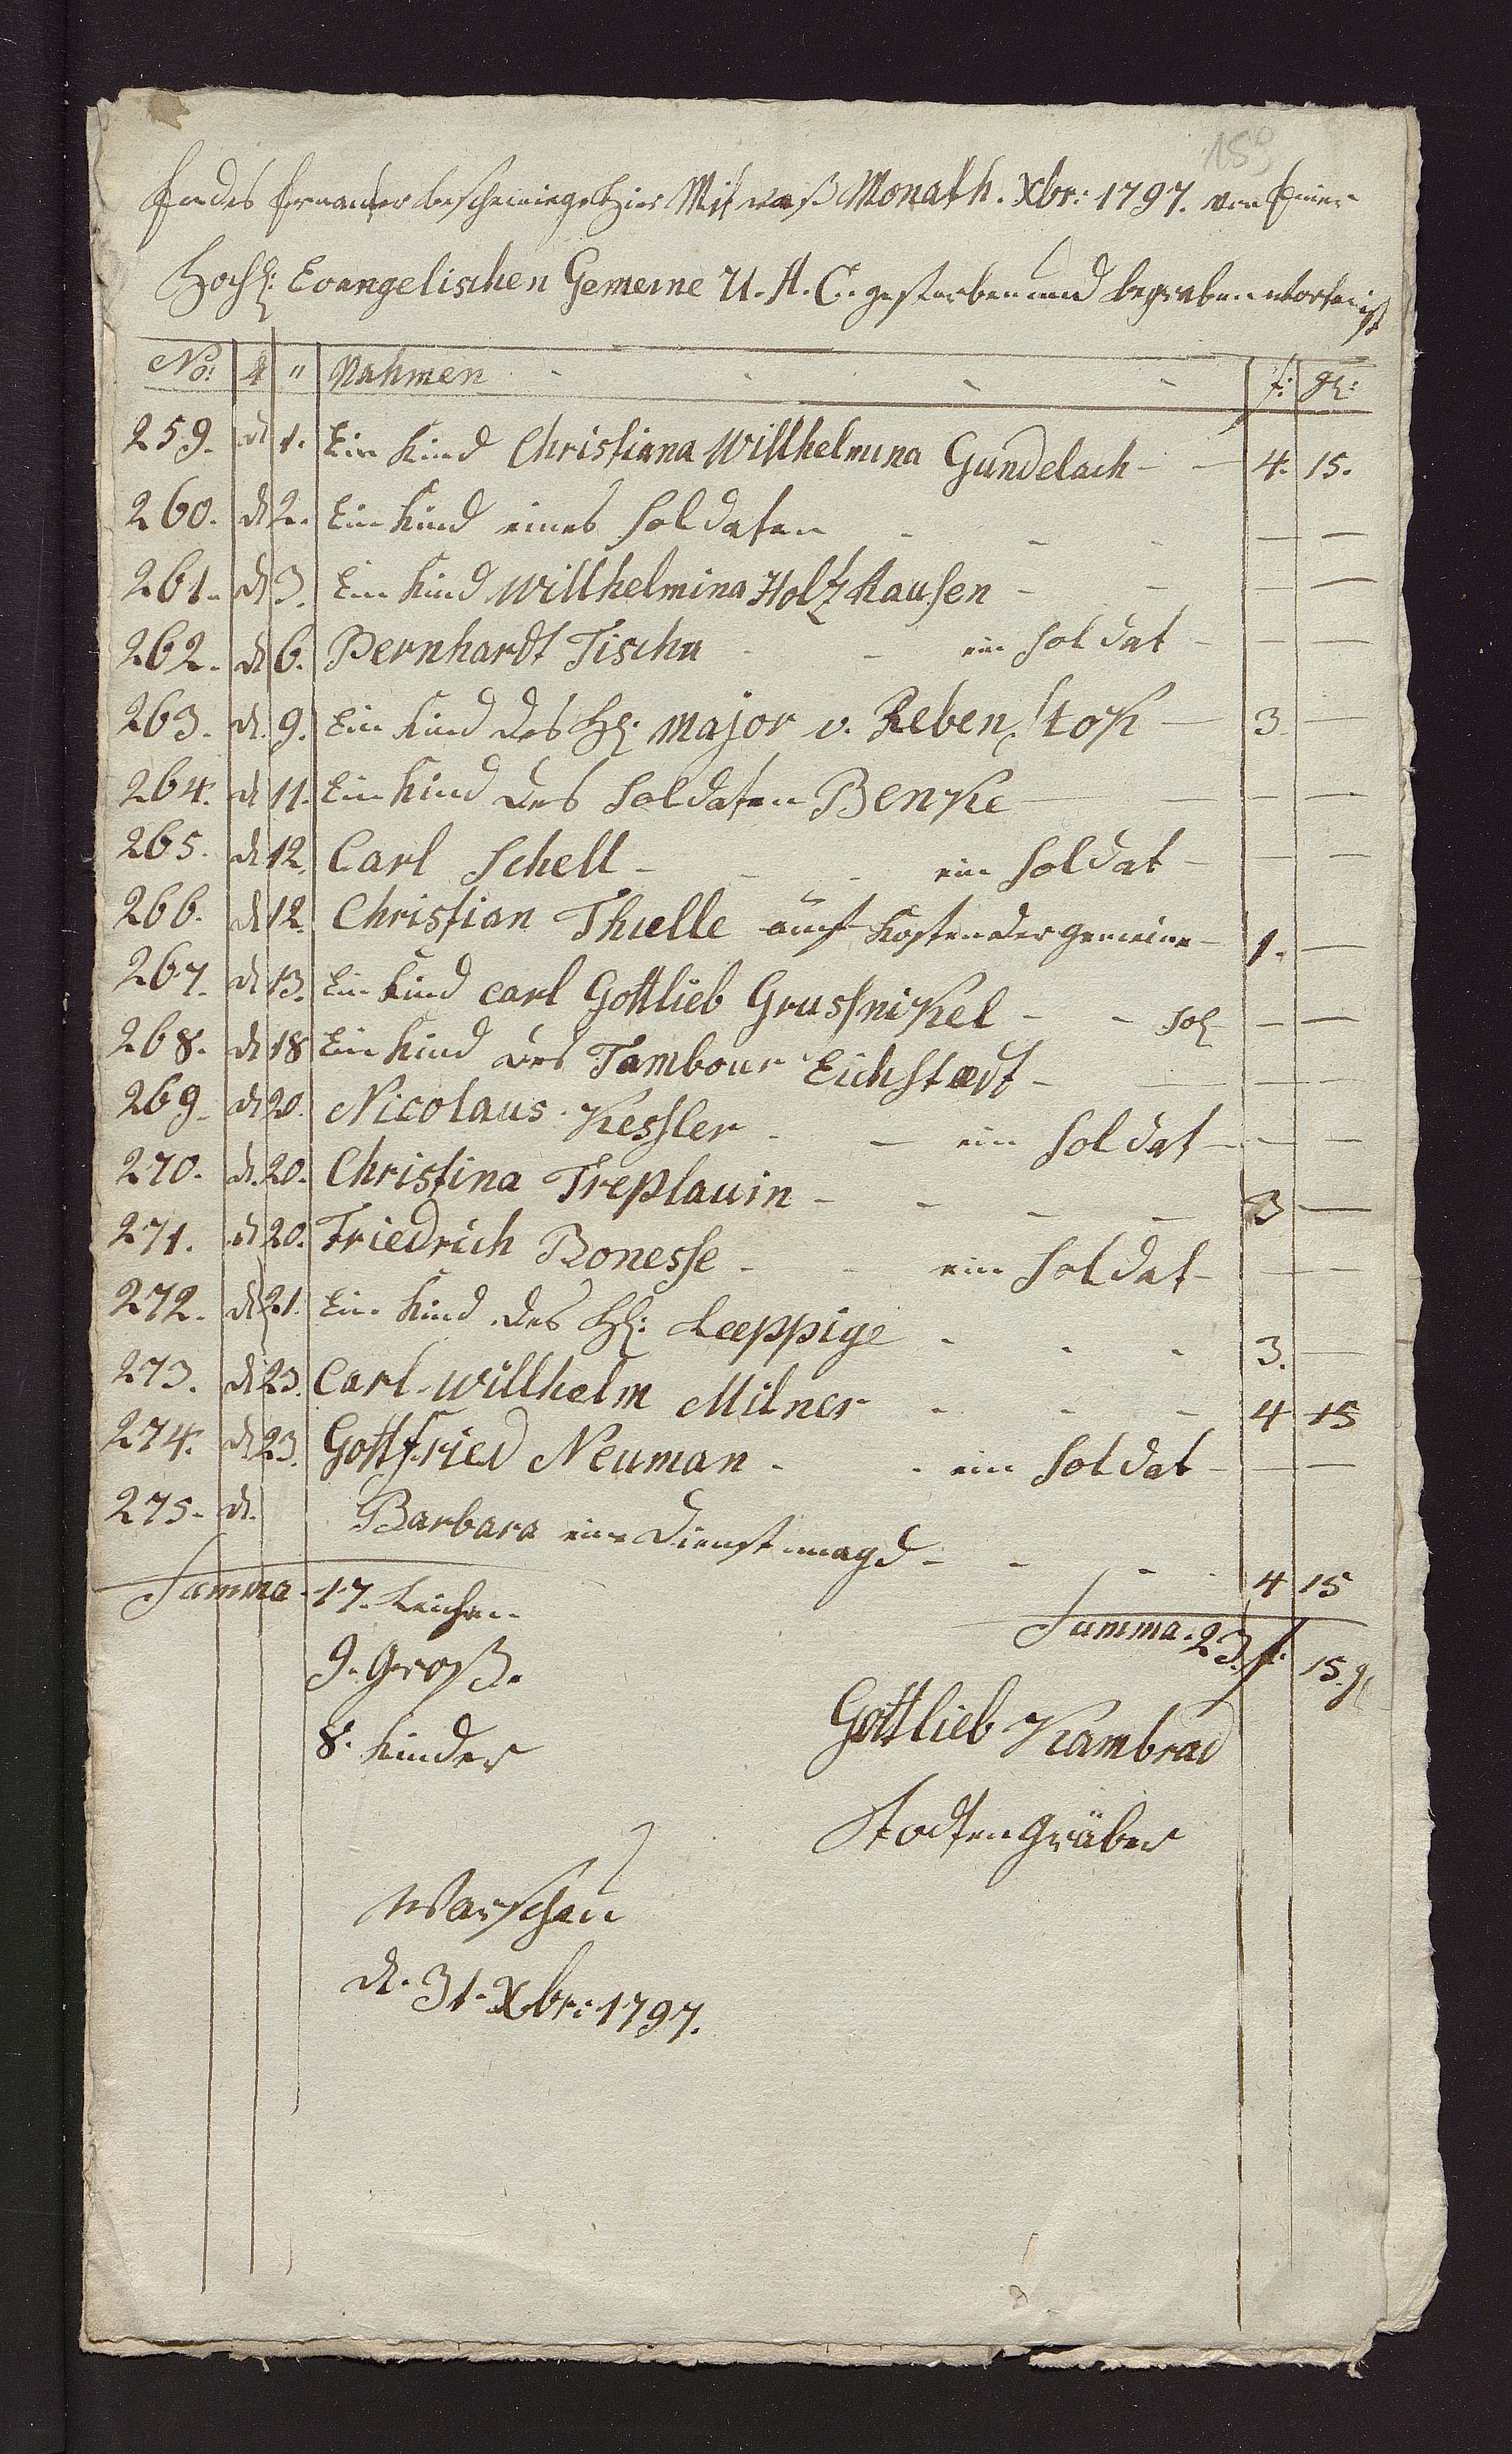 159
Endes ernanter bescheinige hier Mit waß Monath. Xbr: 1797. von Einer
Hochl: Evangelischen Gemeine U. A. C. gestorben und begraben worden ist
No: d " Nahmen f: gl:
259. d 1. Ein Kind Christiana Willhelmina Gundelach - - 4. 15.
260. d 2. Ein Kind eines Soldaten - - - — —
261. d 3. Ein Kind Willhelmina Holtzhausen - - — —
262. d 6. Bernhardt Tischer - - ein Soldat - — —
263. d. 9. Ein Kind des H: Major v. Rebenstok — 3 —
264. d 11. Ein Kind des Soldaten Benke — — — —
265. d 12. Carl Schell - - - ein Soldat - — —
266. d 12. Christian Thielle auf Kosten der gemeine - 1. —
267. d 13. Ein Kind Carl Gottlieb Grussnikel - - Sol — —
268. d 18 Ein Kind des Tambour Eichstædt - — — —
269. d 20. Nicolaus Kessler - — ein Soldat - — —
270. d. 20. Christina Treplauin - - - - 3 —
271. d 20. Friedrich Bonesse - - ein Soldat - — —
272. d 21. Ein Kind des H: Læppige - - - 3. —
273. d 23. Carl Willhelm Milner - - - 4 15
274. d 23. Gottfried Neuman - - ein Soldat - — —
275. d. Barbara eine Dienstmagd - - - - 4 15
Summa. 17. Leichen Summa. 23. f. 15. gl
9. Groß.
8. Kinder
Gottlieb Kambrad
Stodtengräber
Warschau
d. 31. Xbr: 1797.